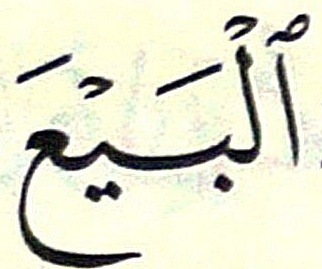 ٱلْبَيْعَ